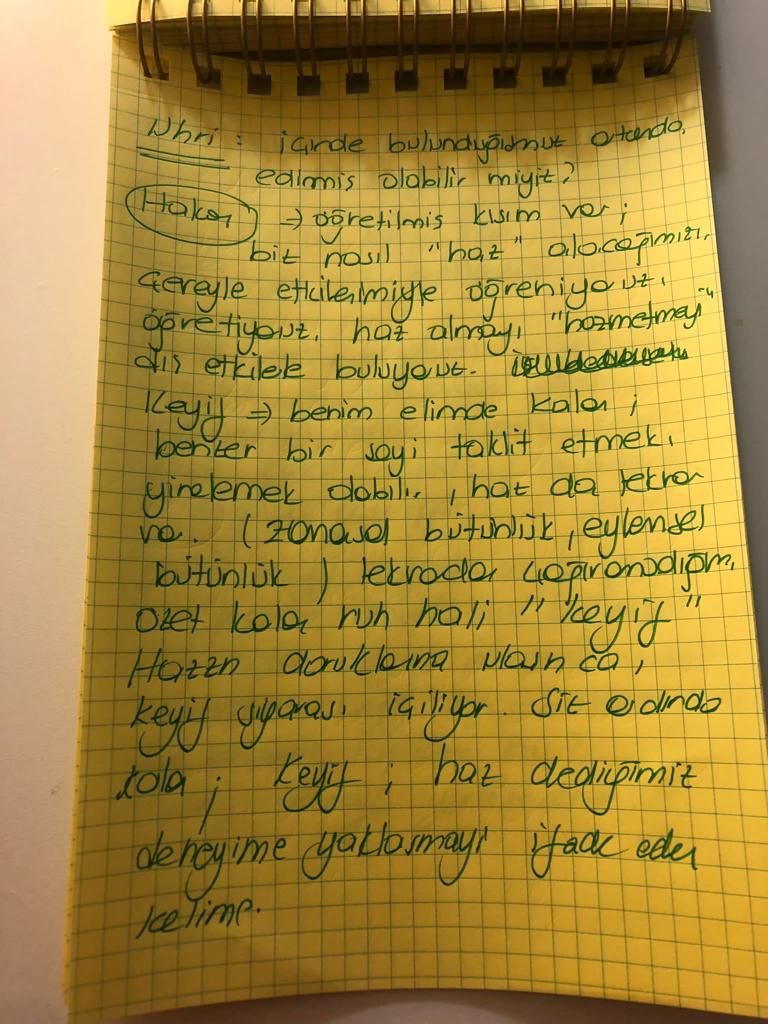 Nhri : içinde bulunduğumuz ortamda
edinmiş olabilir miyiz?
Hakan → öğretilmiş kısım var;
biz nasıl "haz" alacağımızı,
çevreyle etkileşimiyle öğreniyoruz,
öğretiyoruz. haz almayı "hazmetmeyi"
dış etkilerle buluyoruz.
Keyif ⇒ benim elimde kalan;
benzer bir şeyi taklit etmek,
yinelemek olabilir, haz da tekrar
var. (zamansal bütünlük, eylemsel
bütünlük) tekrarda çağıramadığım,
özet kalan ruh hali "keyif"
Hazzın doruklarına ulaşınca,
keyif sigarası içiliyor. Siz adında
kola; Keyif; haz dediğimiz
deneyime yaklaşmayı ifade eden
kelime.